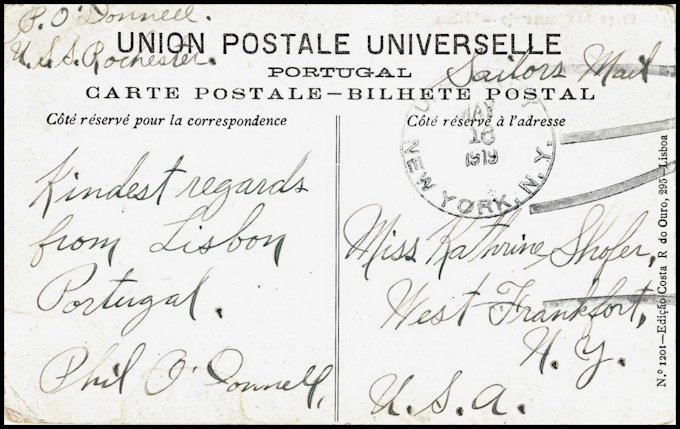 P. O'Donnell.
U.S.S. Rochester.
UNION POSTALE UNIVERSELLE
PORTUGAL
Sailors Mail
CARTE POSTALE—BILHETE POSTAL
Côté réservé pour la correspondence
Côté réservé à l'adresse
MAR
16
1919
NEW YORK, N.Y.
Kindest regards
from Lisbon
Portugal.
Phil O'Donnell,
Miss Kathrine Shofer,
West Frankfort,
N. Y.
U. S. A.
N.º 1201—Edição Costa R do Ouro, 295—Lisboa